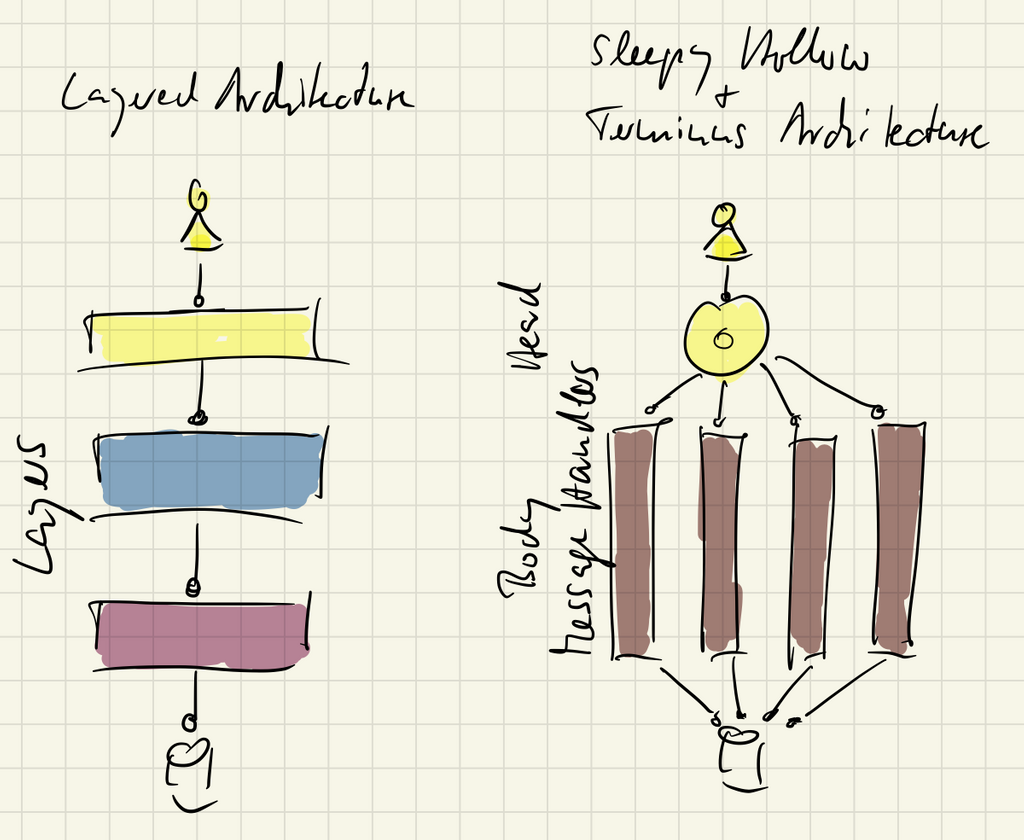 Layered Architecture
Sleepy Hollow
+
Terminus Architecture
Layers
Head
Body
Message Handlers